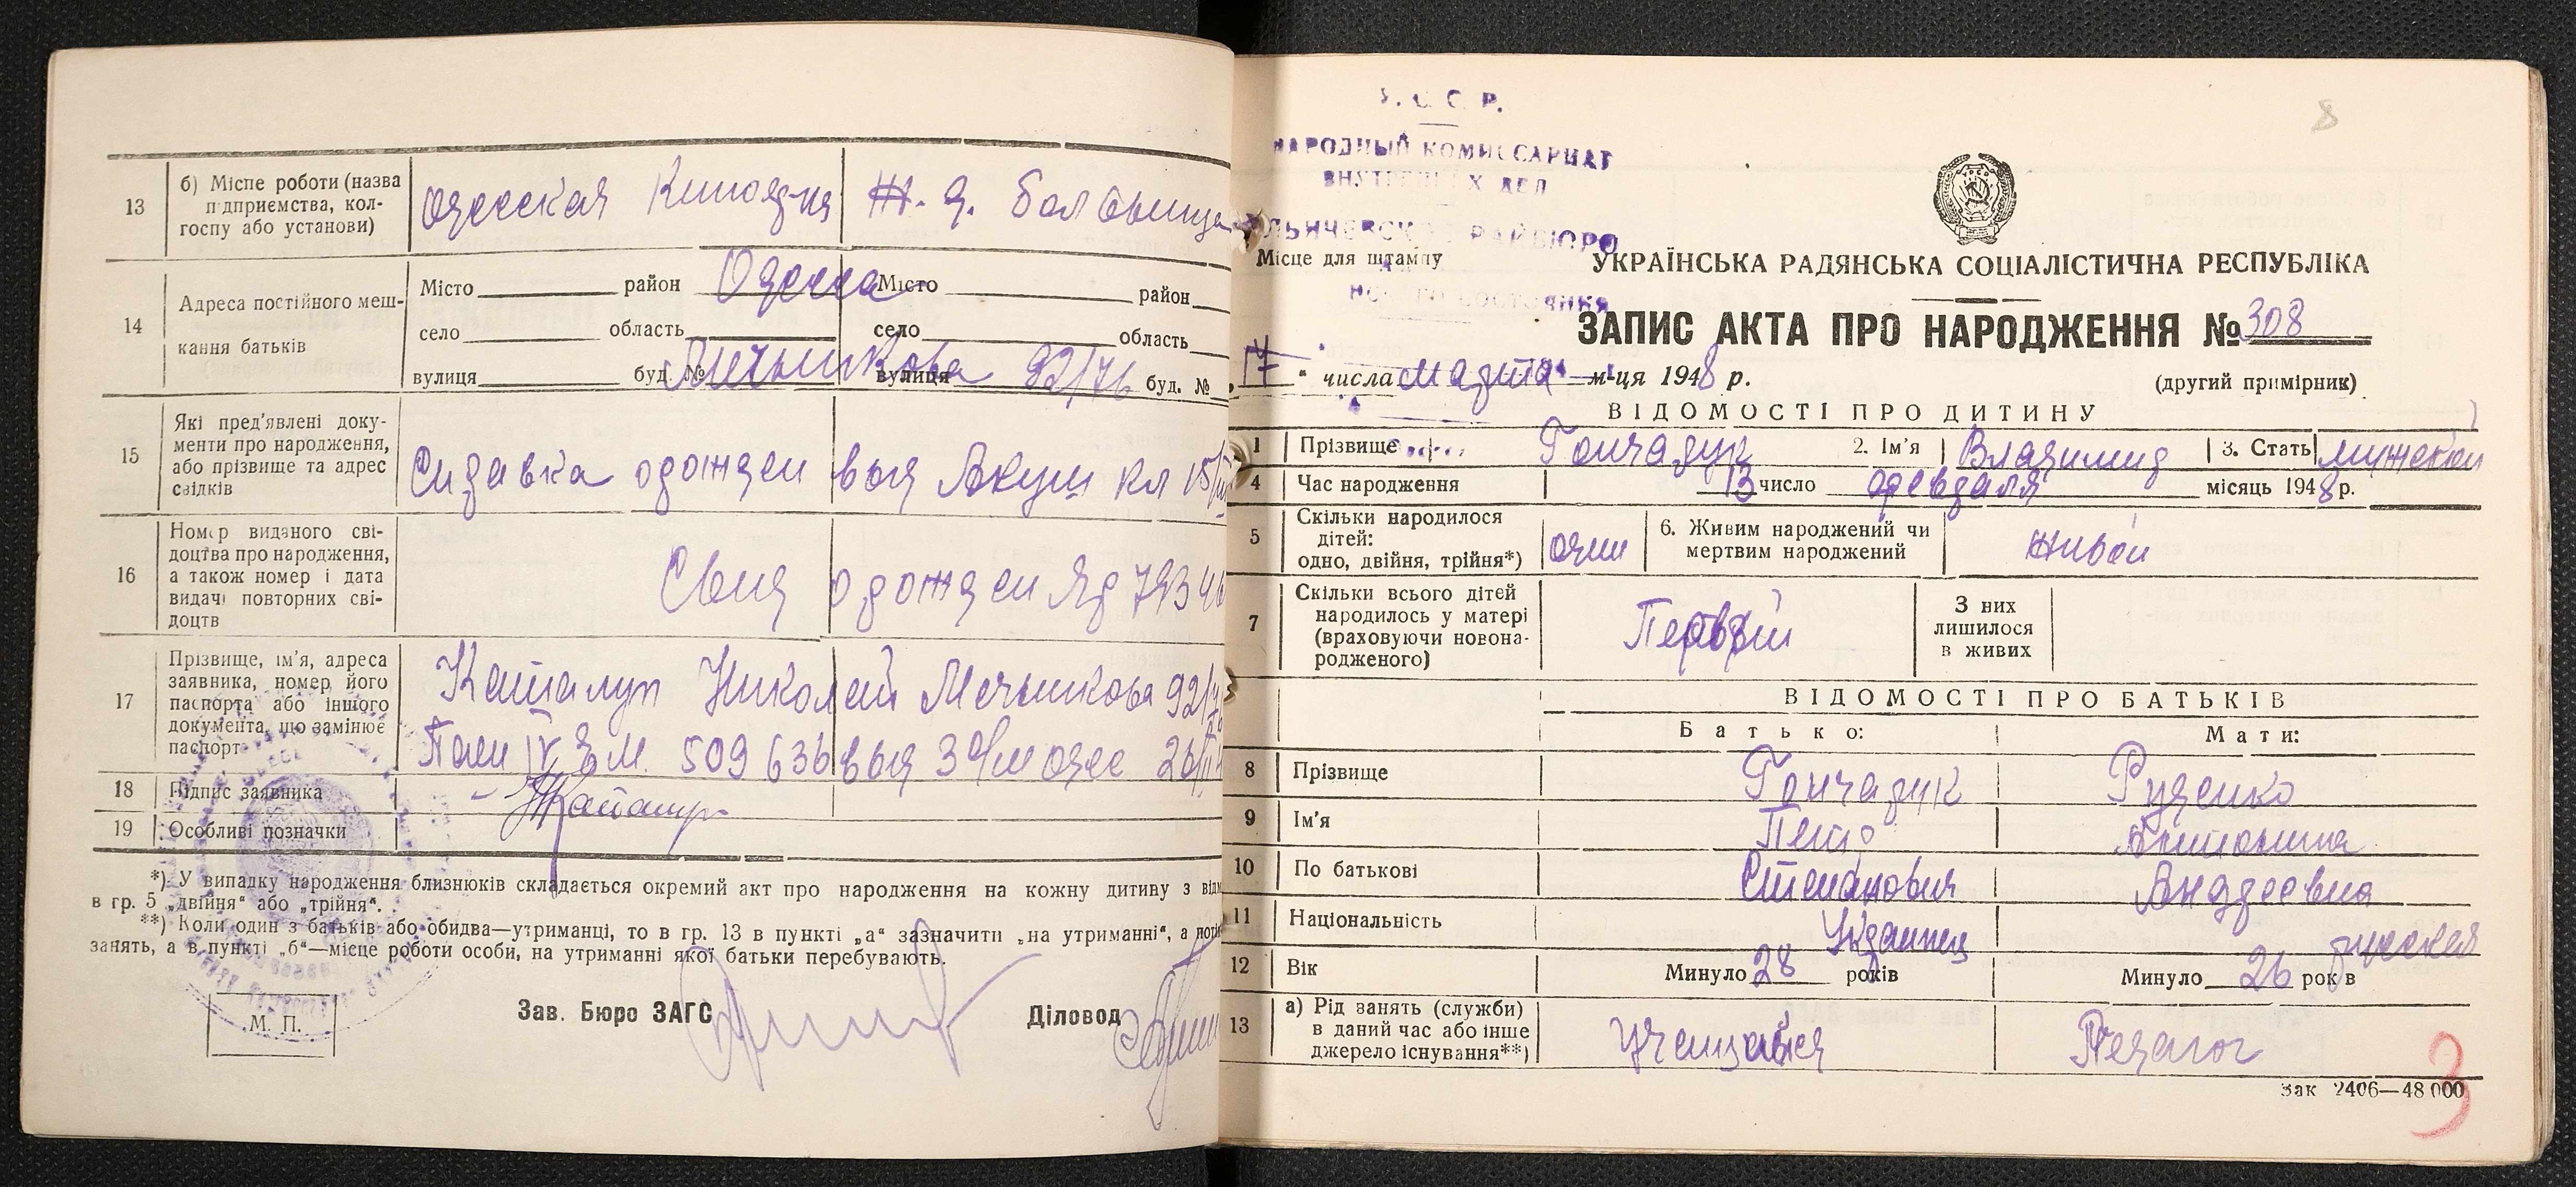 13
б) Місце роботи (назва
підприємства, кол-
госпу або установи)
Одесская
Ж. д. больница
14
Адреса постійного меш-
кання батьків
Місто район Одесса Місто район
село область село область
вулиця буд. № Мечникова 92/76 вулиця буд. №
15
Які пред'явлені доку-
менти про народження,
або прізвище та адрес
свідків
Справка о рожден выд Акуш кл 15/
16
Номер виданого сві-
доцтва про народження,
а також номер і дата
видачі повторних сві-
доцтв
Свид о рожден
17
Прізвище, ім'я, адреса
заявника, номер його
паспорта або іншого
документа, що замінює
паспорт
Николай Мечникова 92/
IV 509636 выд 3 о/м одес 26/
18
Підпис заявника
19
Особливі позначки
*) У випадку народження близнюків складається окремий акт про народження на кожну дитину з відм
в гр. 5 „двійня“ або „трійня“.
**) Коли один з батьків або обидва—утриманці, то в гр. 13 в пункті „а“ зазначити „на утриманні“, а
занять, а в пункті „б“—місце роботи особи, на утриманні якої батьки перебувають.
М. П.
Зав. Бюро ЗАГС
Діловод
8
У. С. С. Р.
НАРОДНЫЙ КОМИССАРИАТ
ВНУТРЕННИХ ДЕЛ
РАЙБЮРО
Місце для штампу
УКРАЇНСЬКА РАДЯНСЬКА СОЦІАЛІСТИЧНА РЕСПУБЛІКА
ЗАПИС АКТА ПРО НАРОДЖЕННЯ № 308
17 “ числа марта м-ця 1948 р.
(другий примірник)
ВІДОМОСТІ ПРО ДИТИНУ
1 Прізвище Гончарук 2. Ім'я Владимир 3. Стать мужской
4 Час народження 13 число февраля місяць 1948 р.
5
Скільки народилося
дітей:
одно, двійня, трійня*)
один
6. Живим народжений чи
мертвим народжений
живой
7
Скільки всього дітей
народилось у матері
(враховуючи новона-
родженого)
Первый
З них
лишилося
в живих
ВІДОМОСТІ ПРО БАТЬКІВ
Батько: Мати:
8 Прізвище Гончарук Руденко
9 Ім'я Петр Антонина
10 По батькові Степанович Андреевна
11 Національність Украинец русская
12 Вік Минуло 28 років Минуло 26 років
13
а) Рід занять (служби)
в даний час або інше
джерело існування**)
Педагог
Зак 2406—48 000
3